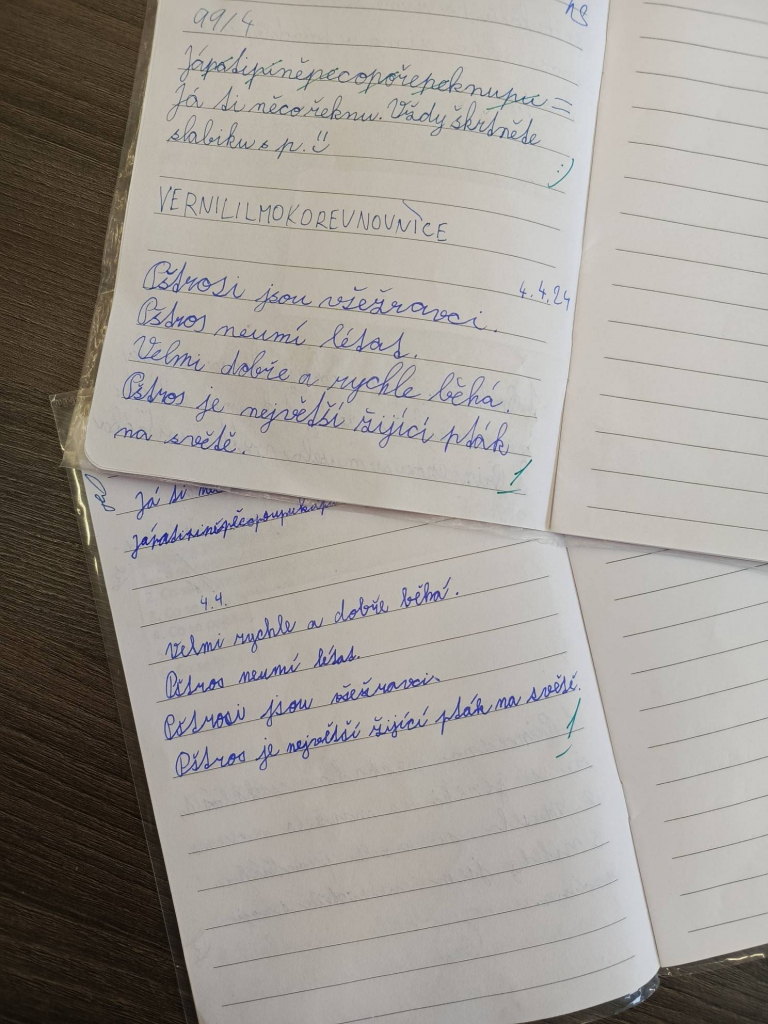 99/4
Jápatipiněpecopořepeknupu =
Já ti něco řeknu. Vždy škrtněte
slabiku s p.
:)
VERNILILMOKOREVNOVNICE
4.4.24
Pštrosi jsou všežravci.
Pštros neumí létat.
Velmi dobře a rychle běhá.
Pštros je největší žijící pták
na světě.
1
Já ti
4.4.
Velmi rychle a dobře běhá.
Pštros neumí létat.
Pštrosi jsou všežravci.
Pštros je největší žijící pták na světě.
1